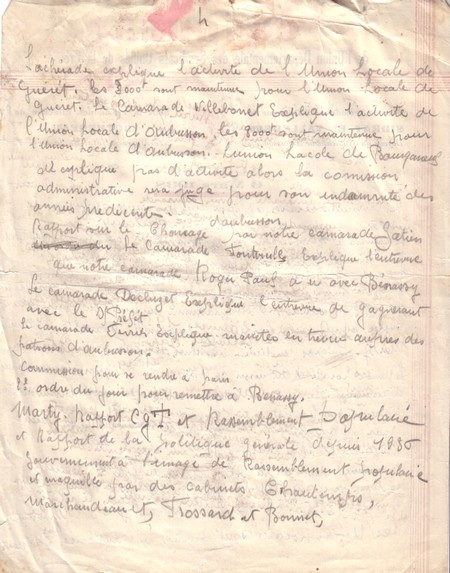 4
Lachérade explique l'activité de l'Union Locale de
Guéret. les 3000f sont maintenue pour l'Union Locale de
gueret. Le Camarade Villebonet Explique l'activite de
l'Union Locale d'aubusson les 3000f sont maintenue pour
l'Union Locale d'aubusson. L'union Lacole de Bourganeuf
explique pas d'activité alors la comission
administrative sera juge pour son indamnité des
années précédente.
d'aubusson
Rapport sur le Chomage par notre camarade Gatien
Le Camarade Explique l'entrevue
que notre camarade Roger Paul a eu avec Bénassy
Le camarade Decluzet Explique l'entrevue de gagnerant
avec le Préfet
le camarade Ferret Explique maintes entrevue aupres des
patrons d'aubusson.
commission pour se rendre à paris
ordre du jour pour remettre à Benassy.
Marty. Rapport CGT et Rassemblement Populaire
et Rapport de la politique générale depuis 1936
gouvernement à l'image de Rassemblement populaire
et des cabinets Chautemps,
Marchandeau et, Frossard et Bonnet,